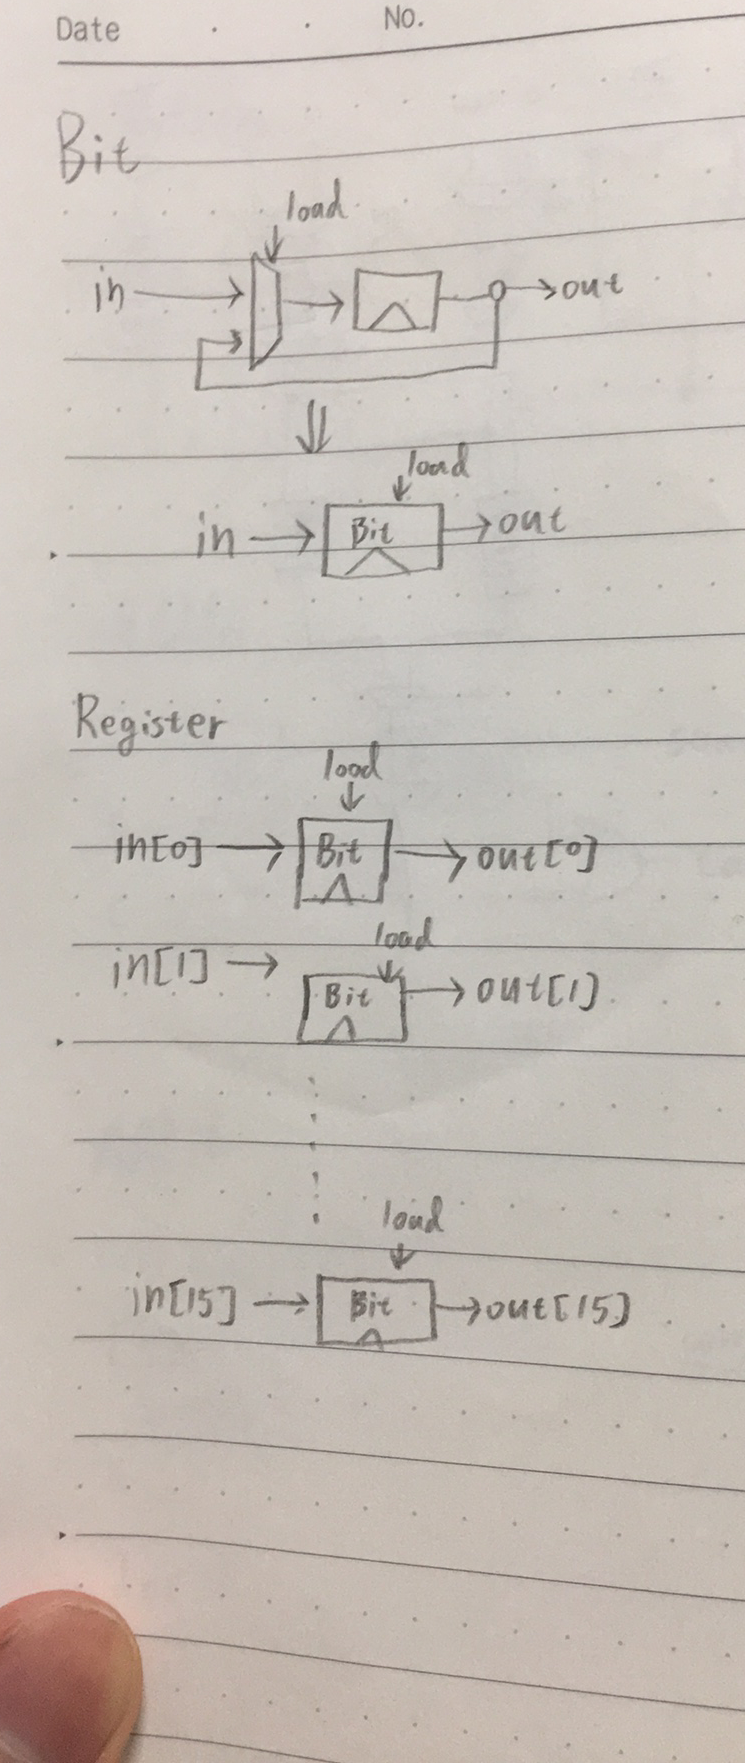 Date . . No.
Bit
load
in out
load
in Bit out
Register
load
in[0] Bit out[0]
load
in[1] Bit out[1]
load
in[15] Bit out[15]